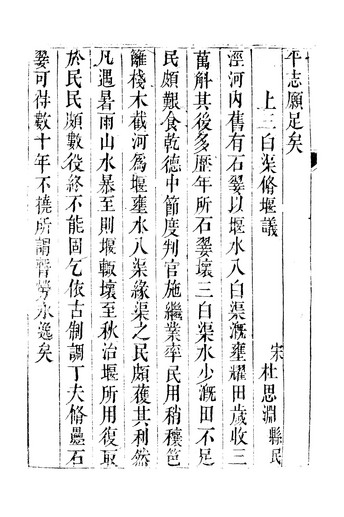 平志願足矣
上三白渠脩堰議
宋杜思淵縣民
涇河内舊有石翣以堰水入白渠溉雍耀田歲收三
萬斛其後多歷年所石翣壞三白渠水少溉田不足
民頗艱食乾德中節度判官施繼業率民用稍穰笆
籬棧木截河為堰壅水入渠緣渠之民頗獲其利然
凡遇暑雨山水暴至則堰輙壞至秋治堰所用復取
於民民頗數役終不能固乞依古制調丁夫脩壘石
翣可得數十年不撓所謂暫勞永逸矣